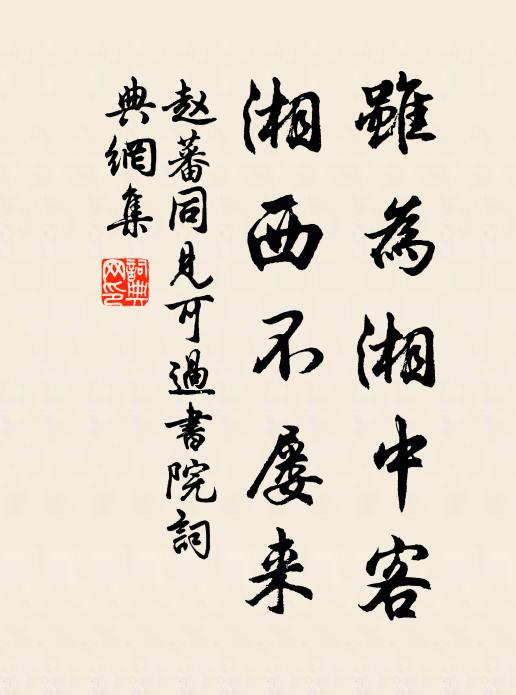 雖為湘中客
湘西不屡来
赵蕃同見可過書院詞
典網集
詞典网印